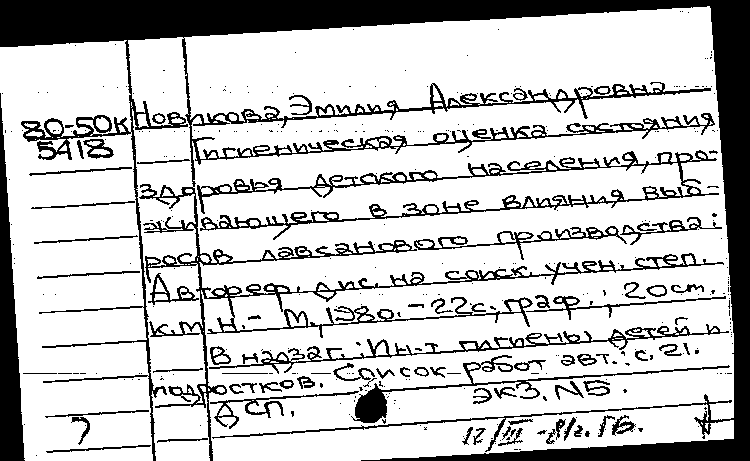 Новикова, Эмилия Александровна
80-50К
5418
Гигиеническая оценка состояния
здоровья детского населения, про-
живающего в зоне влияния выб-
росов лавсанового производства:
Автореф. дис. на соиск. учен. степ.
к.м.н. - М., 1980. - 22с., граф.; 20 см.
В надзаг.: Ин-т гигиены детей и
подростков. Список работ авт.: с. 21.
ДСП. экз. №5.
12/III - 81г.